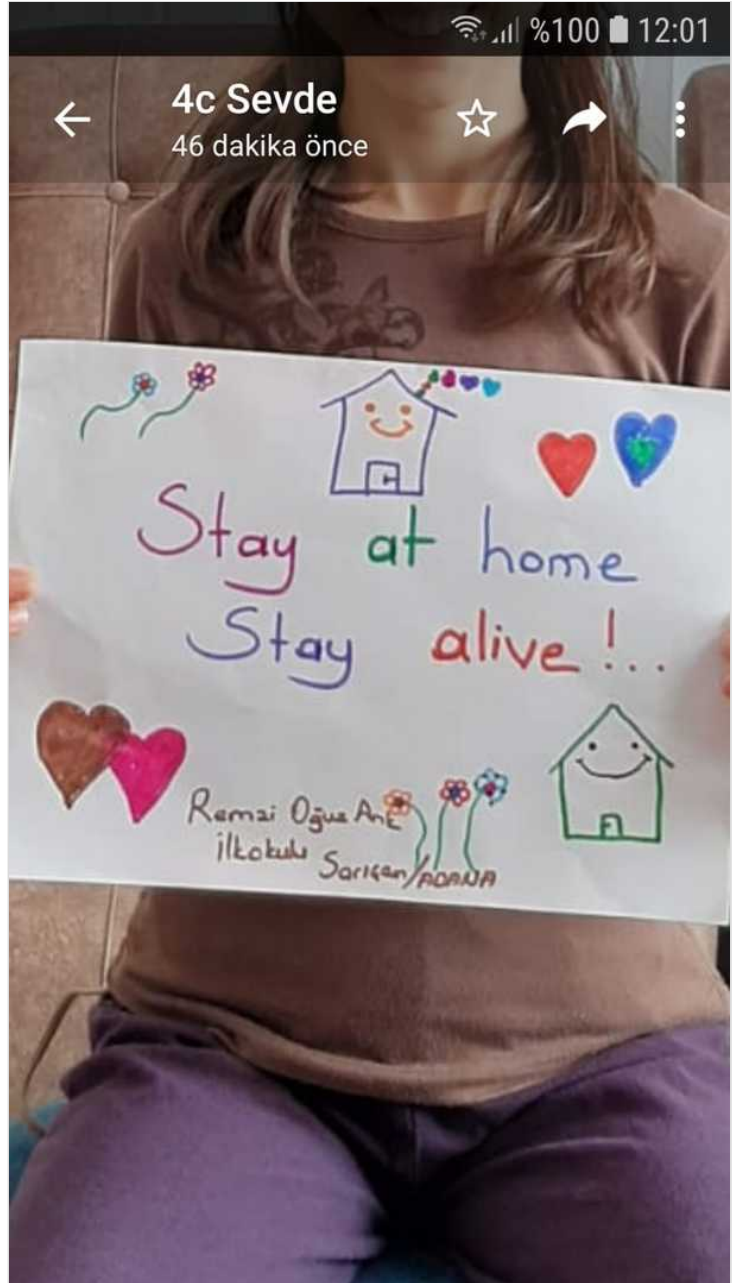 %100 12:01
4c Sevde
46 dakika önce
Stay at home
Stay alive!..
Remzi Oğuz Arık
ilkokulu Sarıçam/ADANA